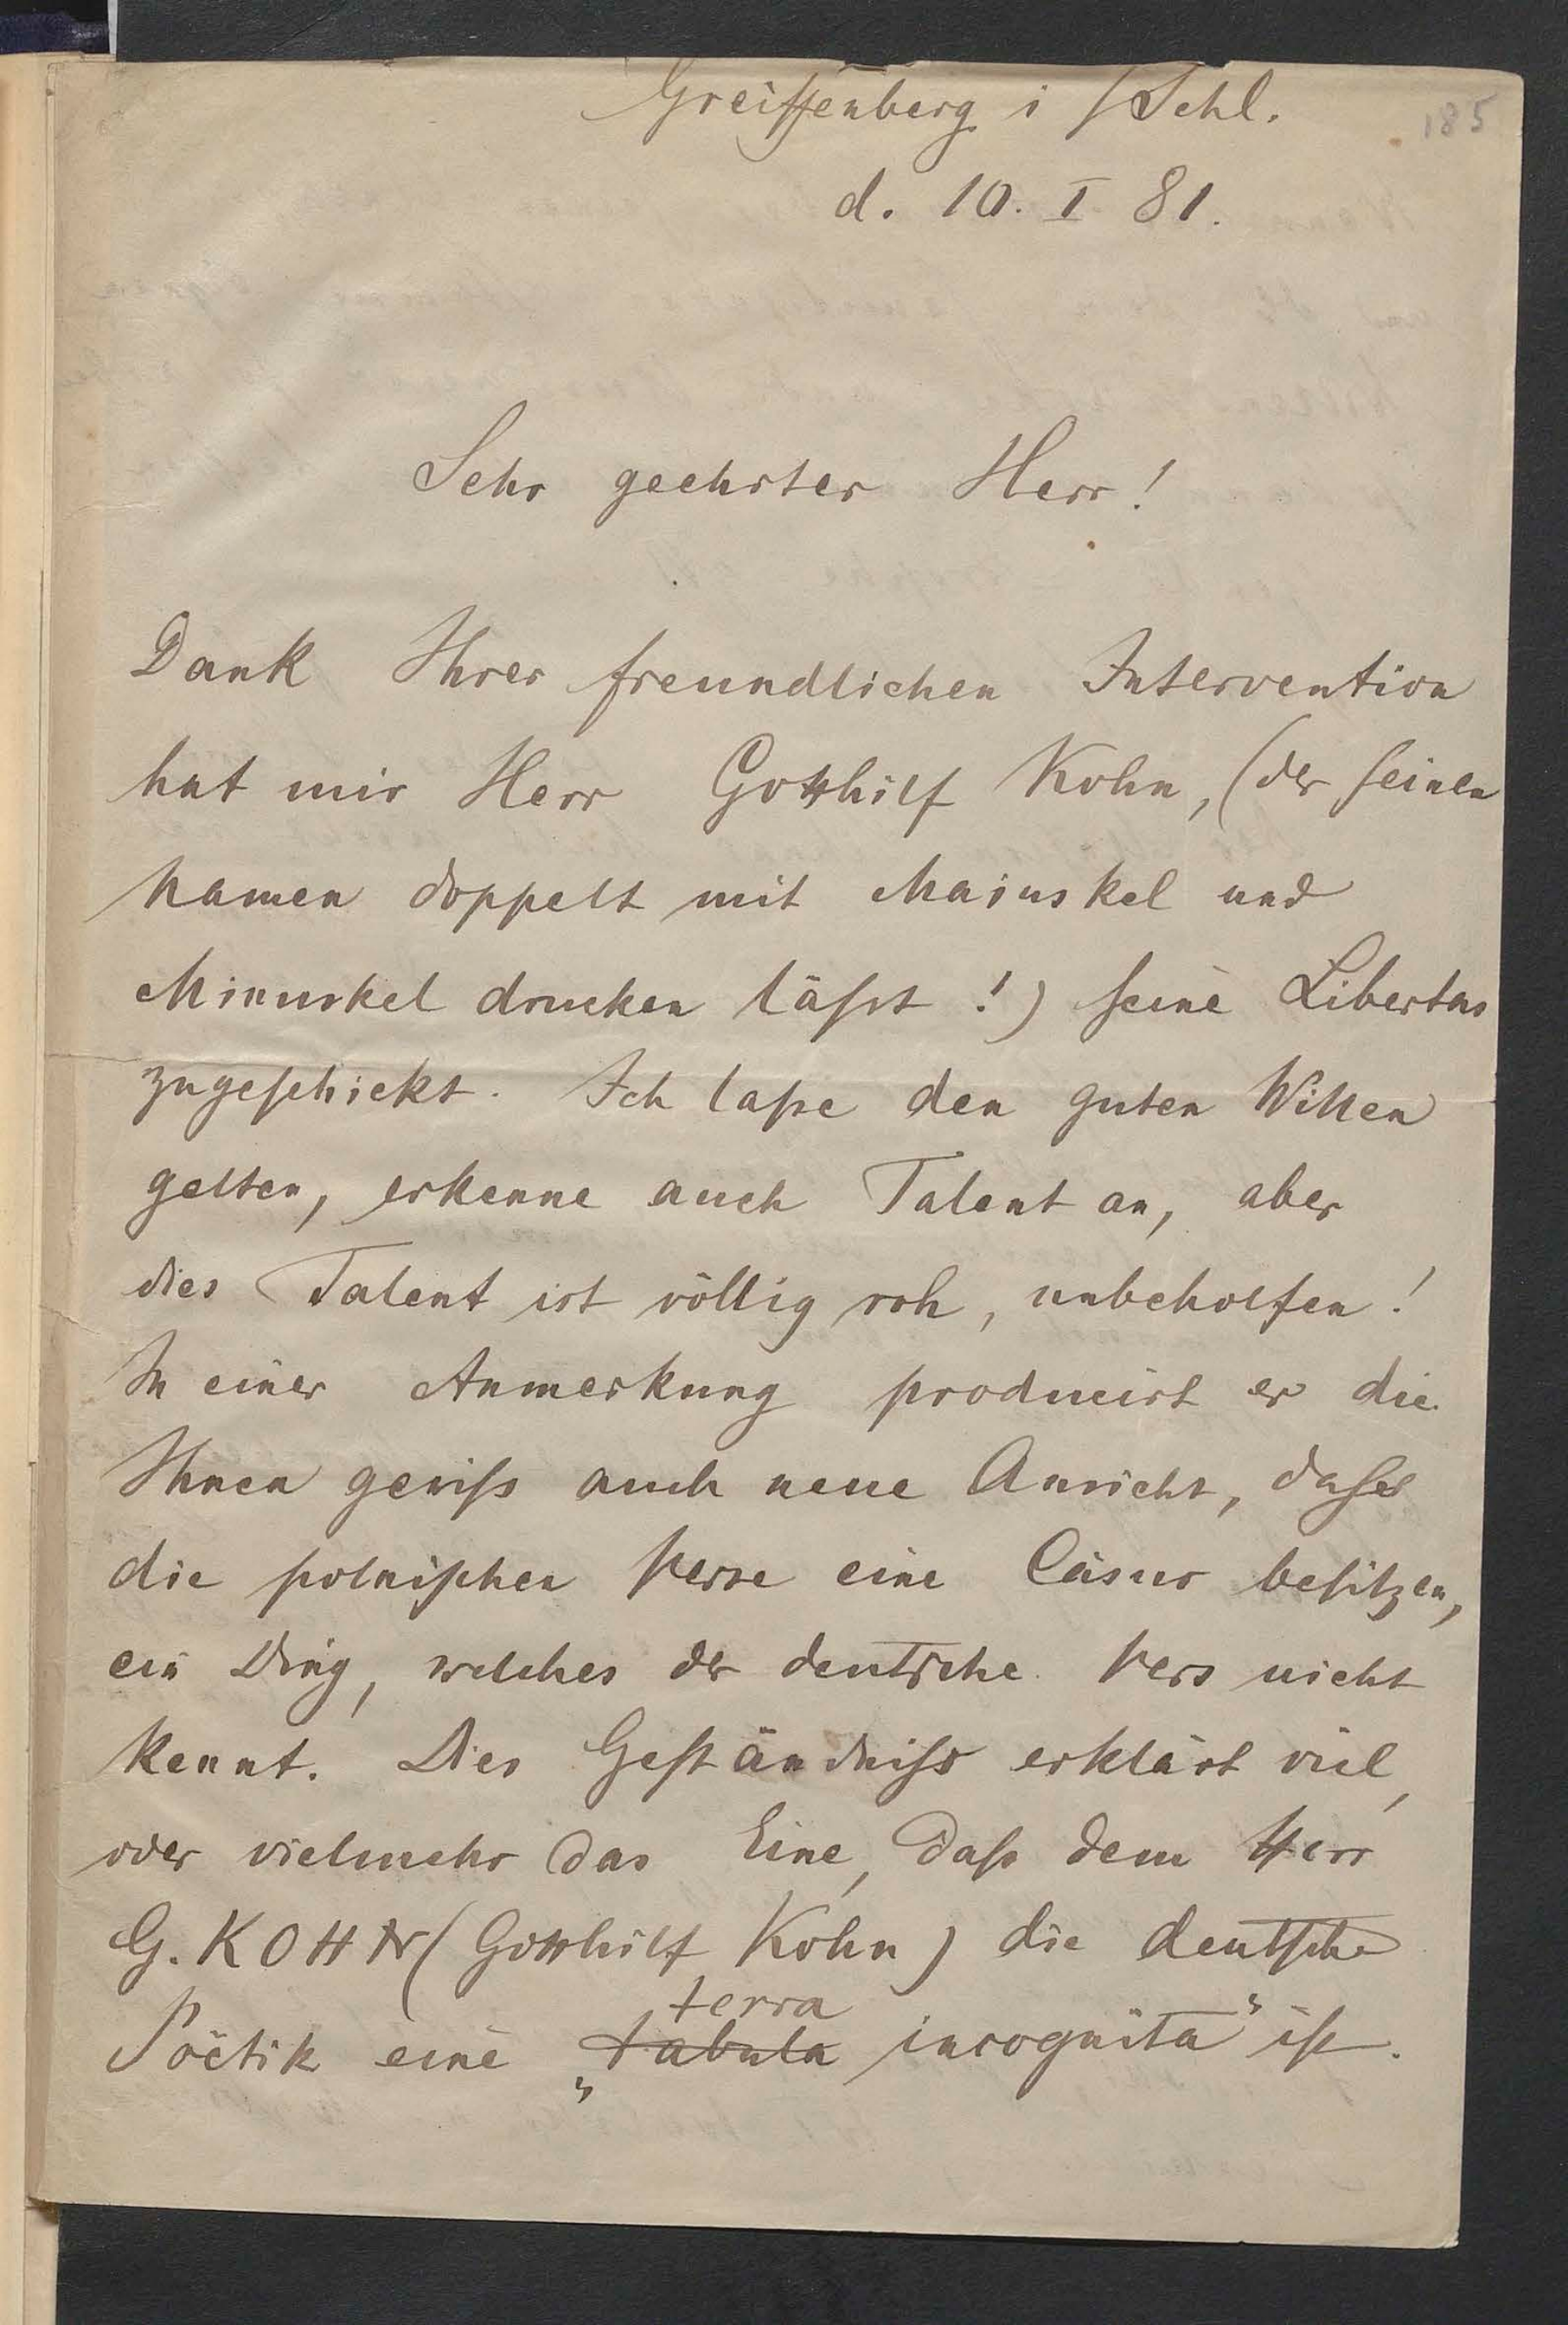 185
Greiffenberg i / Schl.
d. 10. I 81.
Sehr geehrter Herr!
Dank Ihrer freundlichen Intervention
hat mir Herr Gotthilf Kohn, (der seinen
Namen doppelt mit Maiuskel und
Minuskel drucken läßt!) seine Libertas
zugeschickt. Ich laße den guten Willen
gelten, erkenne auch Talent an, aber
dies Talent ist völlig roh, unbeholfen!
In einer Anmerkung producirt er die
Ihnen gewiss auch neue Ansicht, dass
die polnischen Verse eine Cäsur besitzen,
ein Ding, welches der deutsche Vers nicht
kennt. Dies Geständniss erklärt viel,
oder vielmehr das Eine, daß dem Herr
G. KOHN (Gotthilf Kohn) die deutsche
terra
Poëtik eine „tabula incognita“ ist.